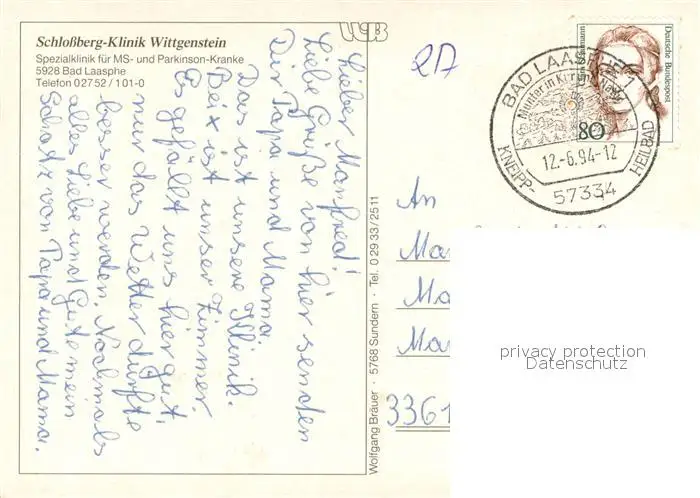 Schloßberg-Klinik Wittgenstein
Spezialklinik für MS- und Parkinson-Kranke
5928 Bad Laasphe
Telefon 02752 / 101-0
Lieber Manfred!
Liebe Grüße von hier senden
Dir Papa und Mama.
Das ist unsere Klinik.
Bei x ist unser Zimmer.
Es gefällt uns hier gut.
nur das Wetter dürfte
besser werden. Nochmals
alles Liebe und Gute mein
Schatz von Papa und Mama.
Wolfgang Bräuer · 5768 Sundern · Tel. 02933/2511
Deutsche Bundespost
80
BAD LAASPHE
Munter in
12.-6.94-12
57334
KNEIPP-
HEILBAD
An
Ma
Ma
Ma
3361
privacy protection
Datenschutz